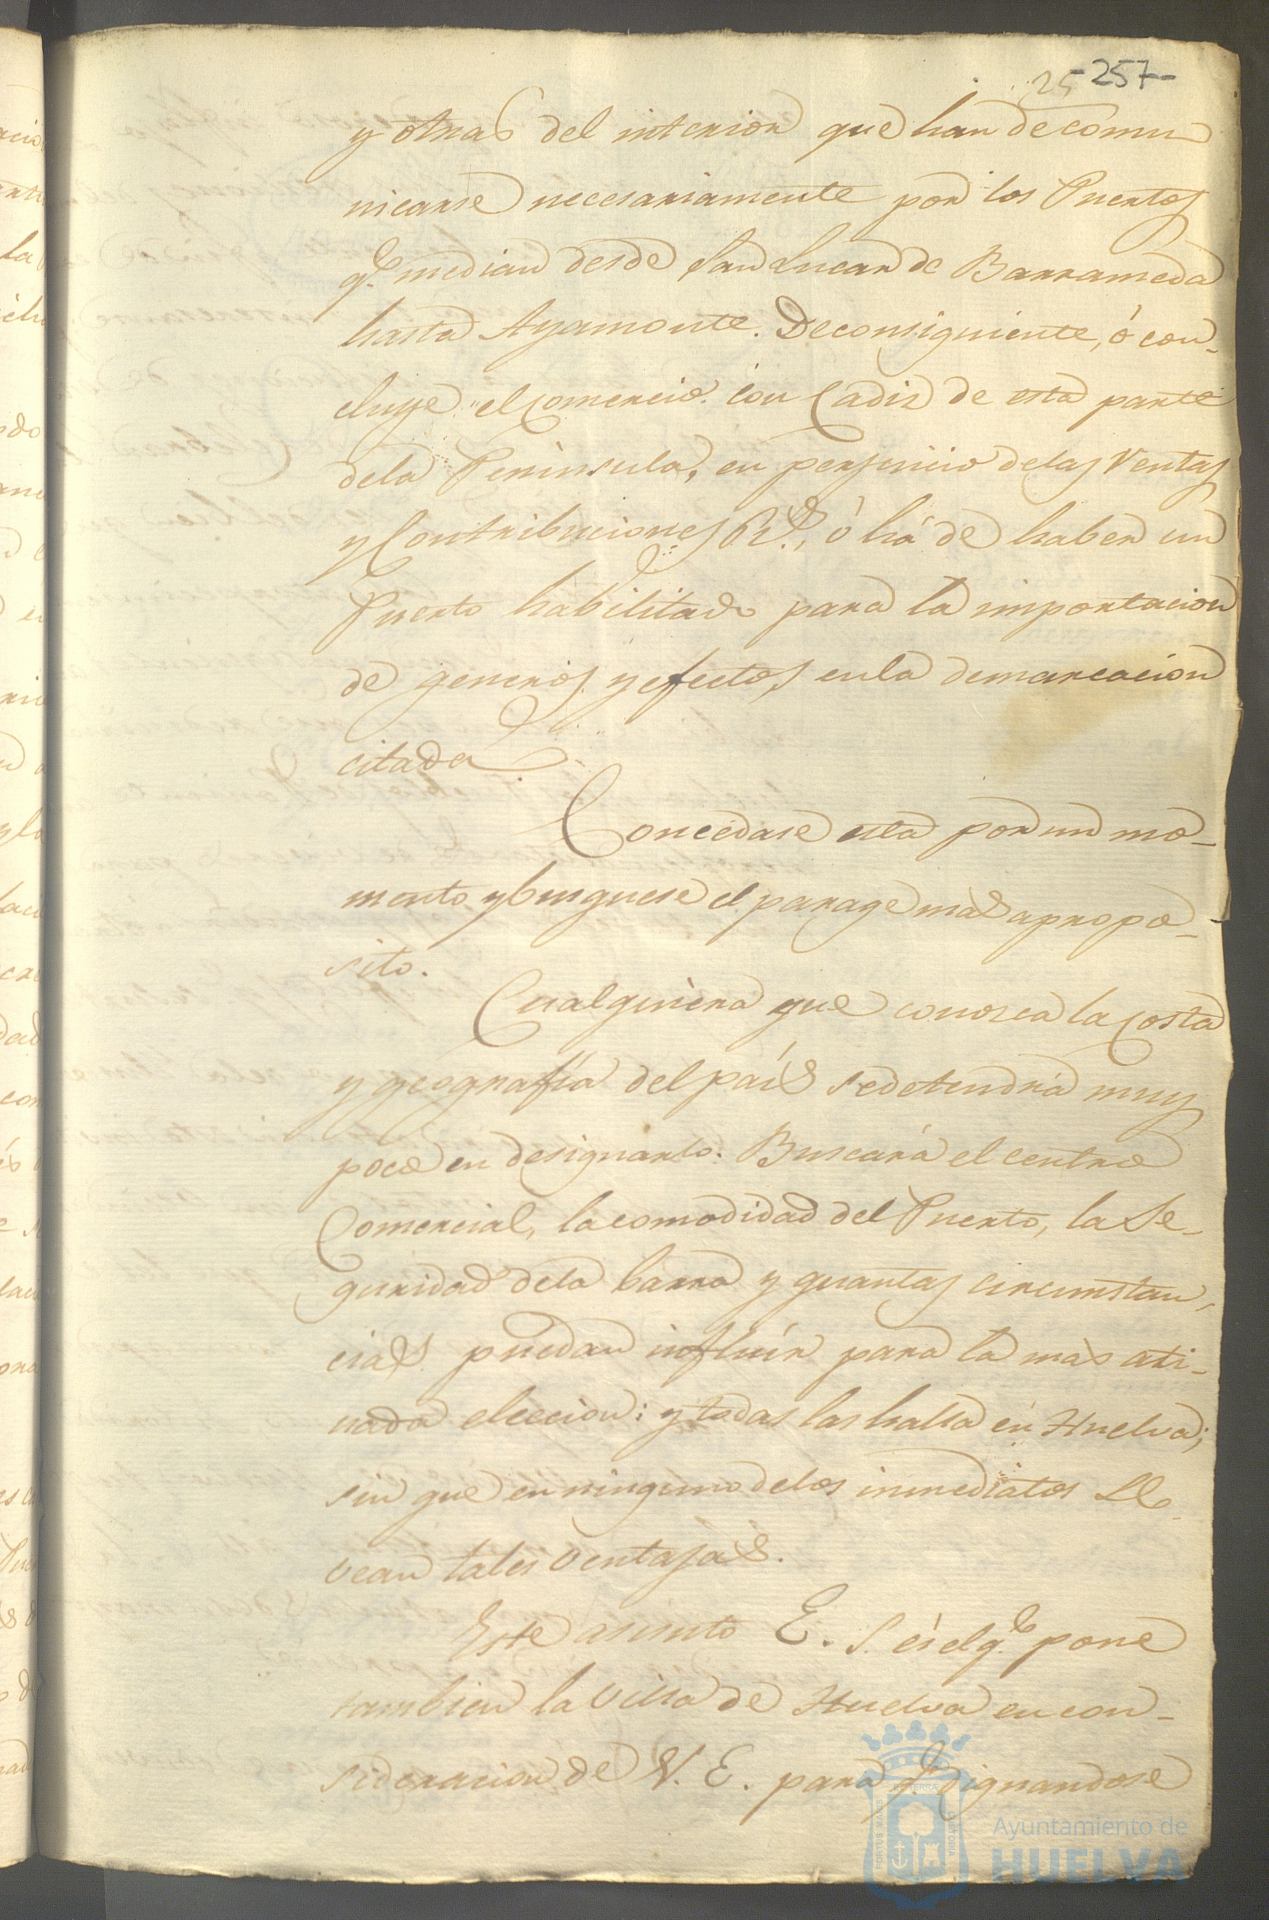 25 -257-
y otras del interior que han de comu
nicarse necesariamente por los Puertos
q.e median desde San Lucar de Barrameda
hasta Ayamonte. De consiguiente, ó con-
cluye el comercio con Cadiz de esta parte
dela Peninsula, en perjuicio delas Ventas
y Contribuciones R.s, ó há de haber un
Puerto habilitado para la importacion
de generos y efectos, enla demarcacion
citada
Concedase esta por un mo-
mento y busquese el parage mas apropo-
sito.
Cualquiera que conosca la costa
y geografía del país se detendrá muy
poco en designarlo. Buscará el centro
Comercial, la comodidad del Puerto, la Se-
guridad dela barra y quantas circunstan-
cias puedan influír para la mas ati-
nada eleccion: y todas las halla en Huelva;
sin que en ninguno delos inmediatos se
vean tales ventajas.
Este asunto E. S. és el q.e pone
tambien la Villa de Huelva en con-
sideracion de V. E. para q.e dignandose
Ayuntamiento de
HUELVA